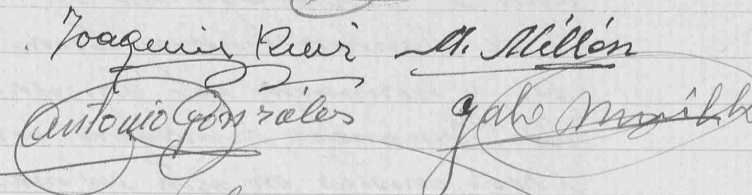 Joaquin Ruiz M. Millón
Antonio Gonzáles Galo